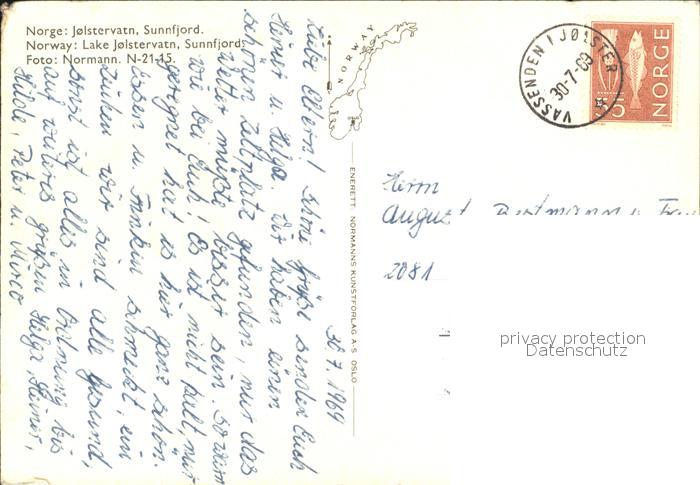 Norge: Jølstervatn, Sunnfjord.
Norway: Lake Jølstervatn, Sunnfjord.
Foto: Normann. N-21-15.
NORWAY
OSLO
VASSENDEN I JØLSTER
30-7-69
55
NORGE
ENERETT NORMANNS KUNSTFORLAG A·S OSLO
30.7.1969
Liebe Eltern! Schöne Grüße senden Euch
Heiner u. Helga. Wir haben einen
schönen Zeltplatz gefunden, nur das
Wetter müßte besser sein. So warm
wie bei Euch! Es ist nicht kalt, nur
geregnet hat es hier ganz schön.
Essen u. Trinken schmeckt, ein
Zeichen wir sind alle gesund,
sonst ist alles in Ordnung bis
auf weiteres grüßen Helga, Heiner,
Hilde, Peter u. Mirco
Herrn
August
2081
privacy protection
Datenschutz